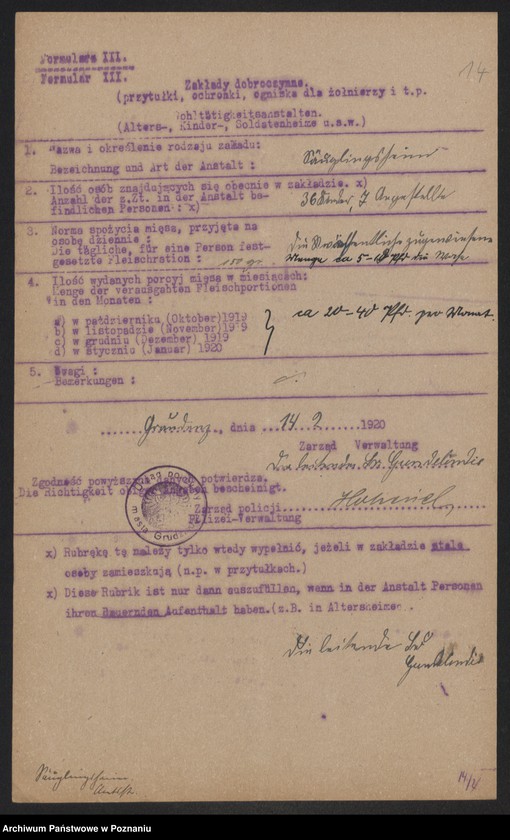 Formularz III.
Formular III.
14
Zakłady dobroczynne.
(przytułki, ochronki, ogniska dla żołnierzy i t.p.
Wohltätigkeitsanstalten.
(Alters-, Kinder-, Soldatenheime u.s.w.)
1. Nazwa i określenie rodzaju zakładu:
Bezeichnung und Art der Anstalt :
Säuglingsheim
2. Ilość osób znajdujących się obecnie w zakładzie. x)
Anzahl der z.Zt. in der Anstalt be-
findlichen Personen : x)
36 Kinder, 7 Angestellte
3. Norma spożycia mięsa, przyjęta na
osobę dziennie :
Die tägliche, für eine Person fest-
gesetzte Fleischration : 150 gr.
Die wöchentliche zugewiesene
Menge ca 5-10 Pfd die Woche
4. Ilość wydanych porcyj mięsa w miesiącach:
Menge der verausgabten Fleischportionen
in den Monaten :
a) w październiku (Oktober)1919
b) w listopadzie (November)1919
c) w grudniu (Dezember) 1919
d) w styczniu (Januar) 1920
ca 20-40 Pfd. pro Monat.
5. Uwagi :
Bemerkungen :
Graudenz, dnia 14. 2. 1920
Zarząd Verwaltung
Zgodność powyższych danych potwierdza.
Die Richtigkeit obiger Angaben bescheinigt.
Zarząd policji
Polizei-Verwaltung
x) Rubrękę tę należy tylko wtedy wypełnić, jeżeli w zakładzie stale
osoby zamieszkują (n.p. w przytułkach.)
x) Diese Rubrik ist nur dann auszufüllen, wenn in der Anstalt Personen
ihren Dauernden Aufenthalt haben.(z.B. in Altersheimen .
Die leitende
Säuglingsheim
14/4
Archiwum Państwowe w Poznaniu